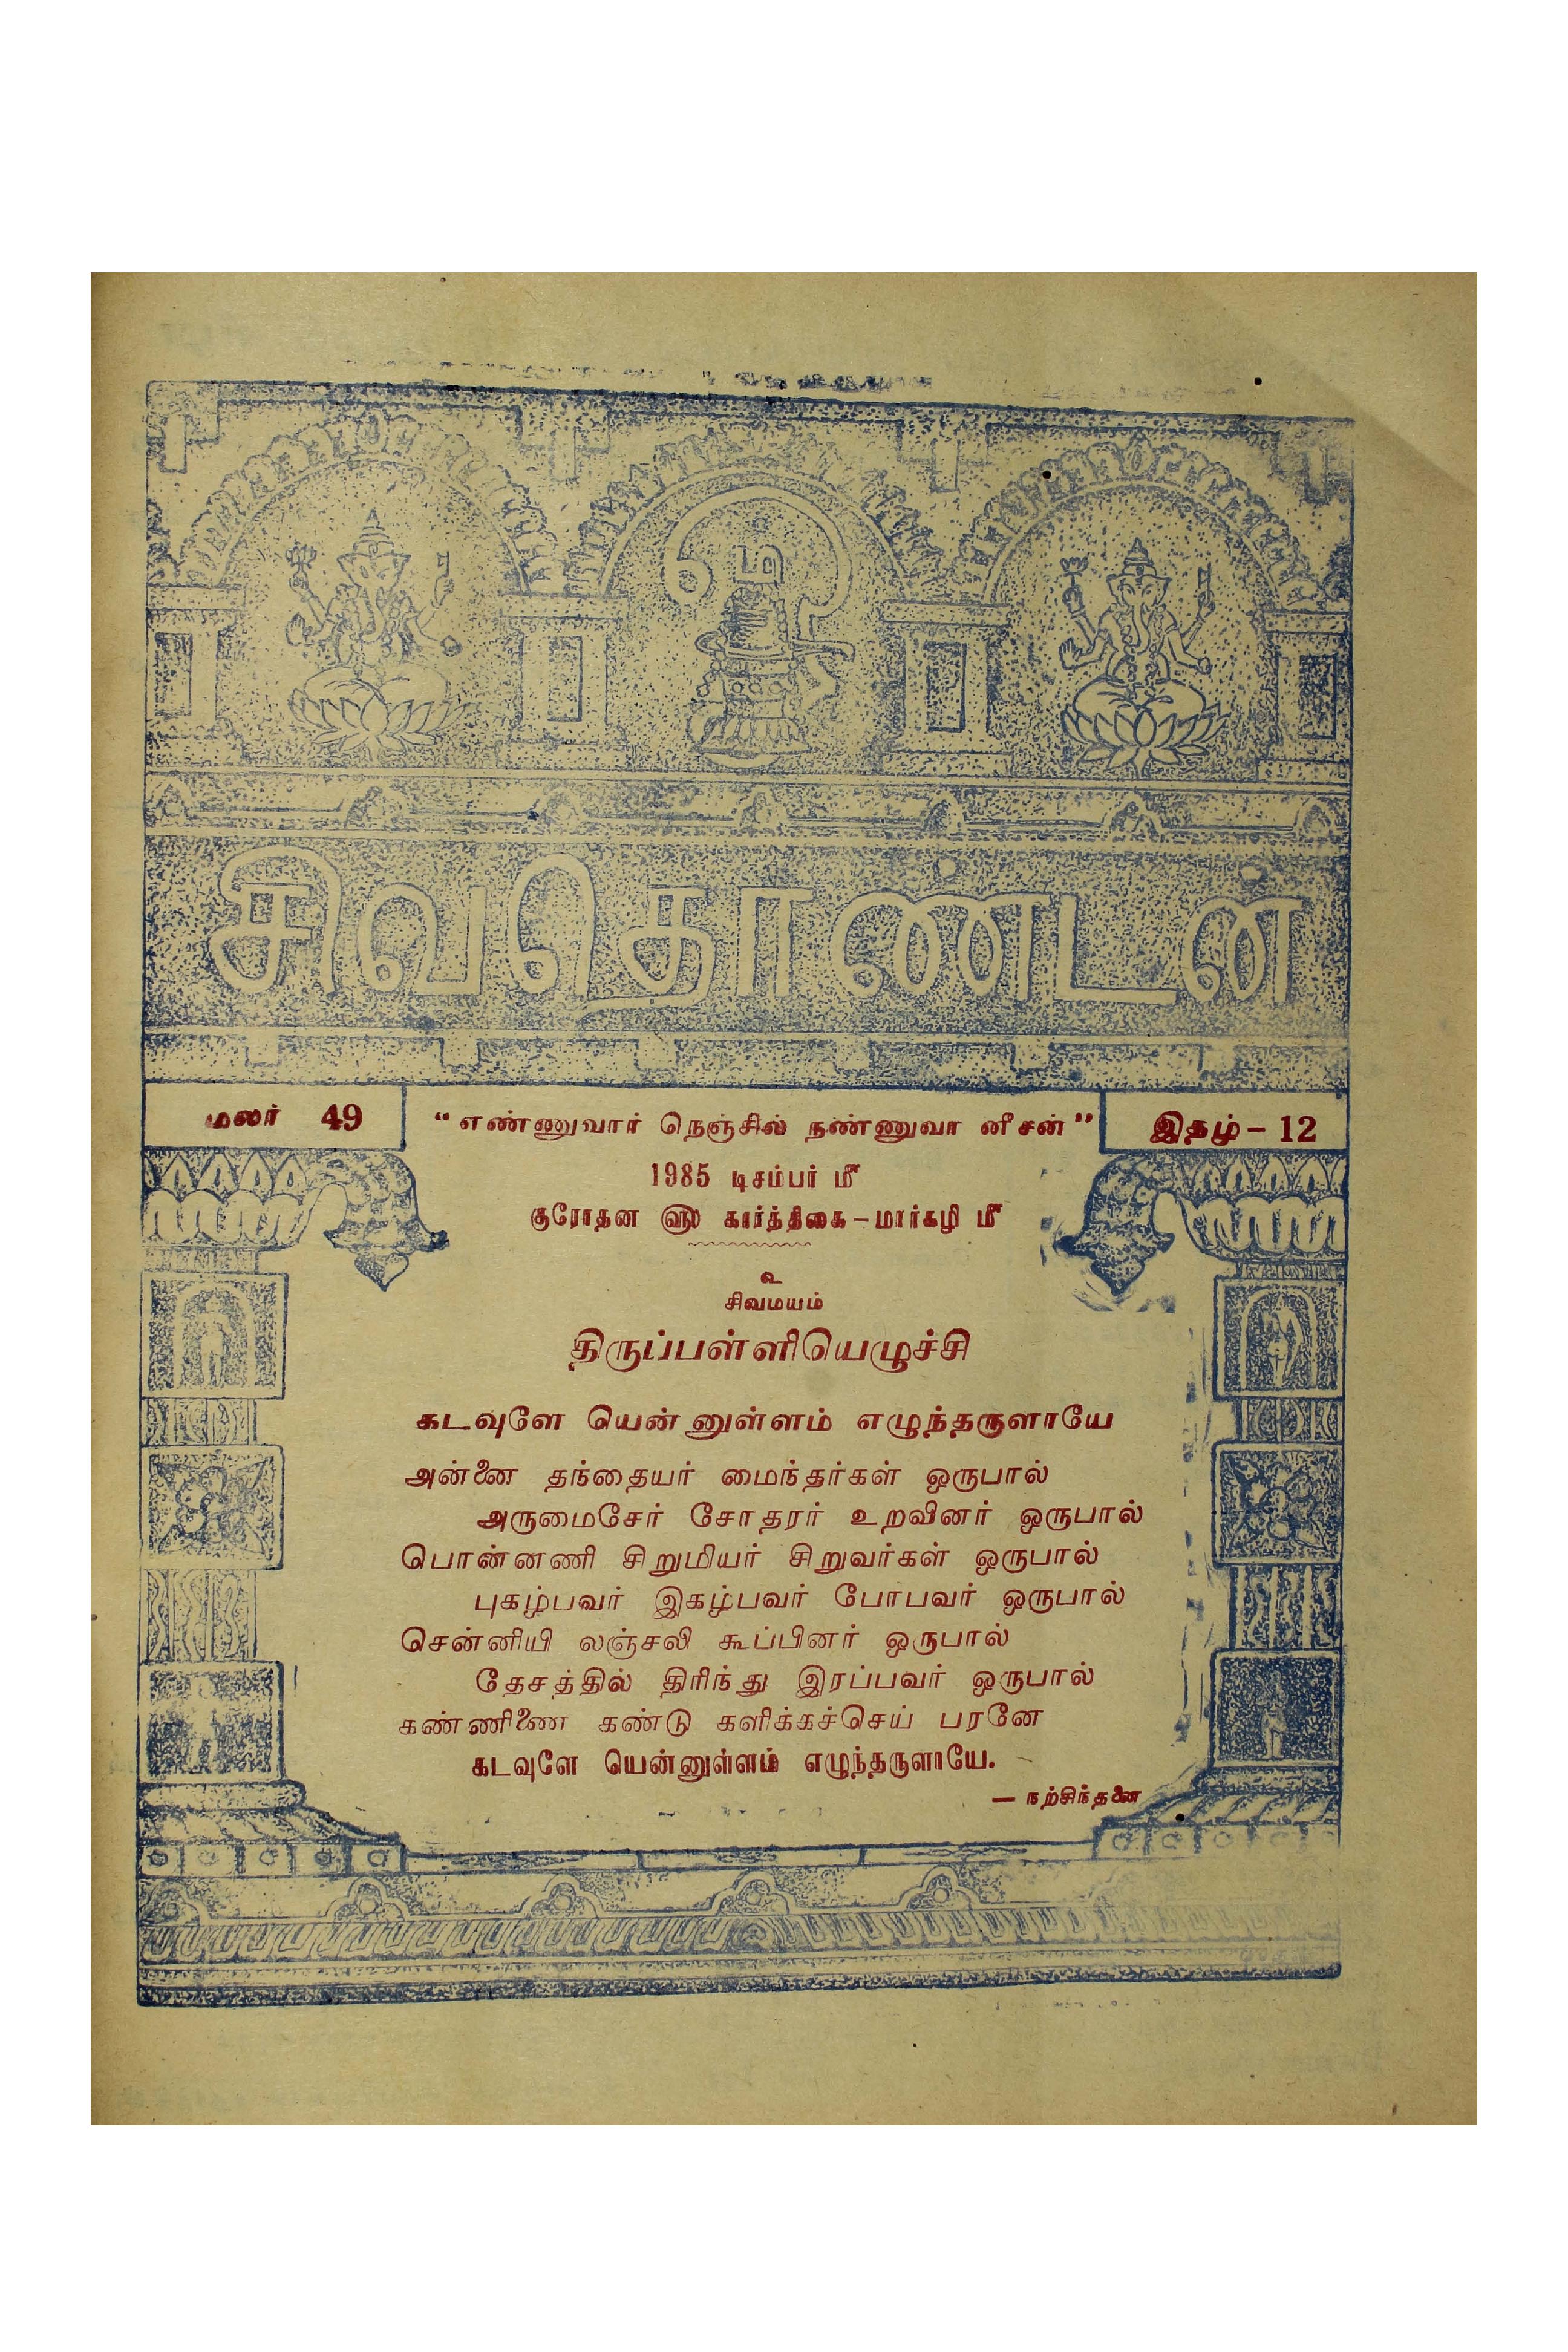 சிவதொண்டன்
மலர் 49
“எண்ணுவார் நெஞ்சில் நண்ணுவா னீசன்”
இதழ் – 12
1985 டிசம்பர் ௴
குரோதன ௵ கார்த்திகை – மார்கழி ௴
உ
சிவமயம்
திருப்பள்ளியெழுச்சி
கடவுளே யென்னுள்ளம் எழுந்தருளாயே
அன்னை தந்தையர் மைந்தர்கள் ஒருபால்
அருமைசேர் சோதரர் உறவினர் ஒருபால்
பொன்னணி சிறுமியர் சிறுவர்கள் ஒருபால்
புகழ்பவர் இகழ்பவர் போபவர் ஒருபால்
சென்னியி லஞ்சலி கூப்பினர் ஒருபால்
தேசத்தில் திரிந்து இரப்பவர் ஒருபால்
கண்ணிணை கண்டு களிக்கச்செய் பரனே
கடவுளே யென்னுள்ளம் எழுந்தருளாயே.
— நற்சிந்தனை